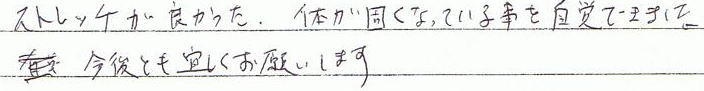 ストレッチが良かった. 体が固くなっている事を自覚できました
今後とも宜しくお願いします